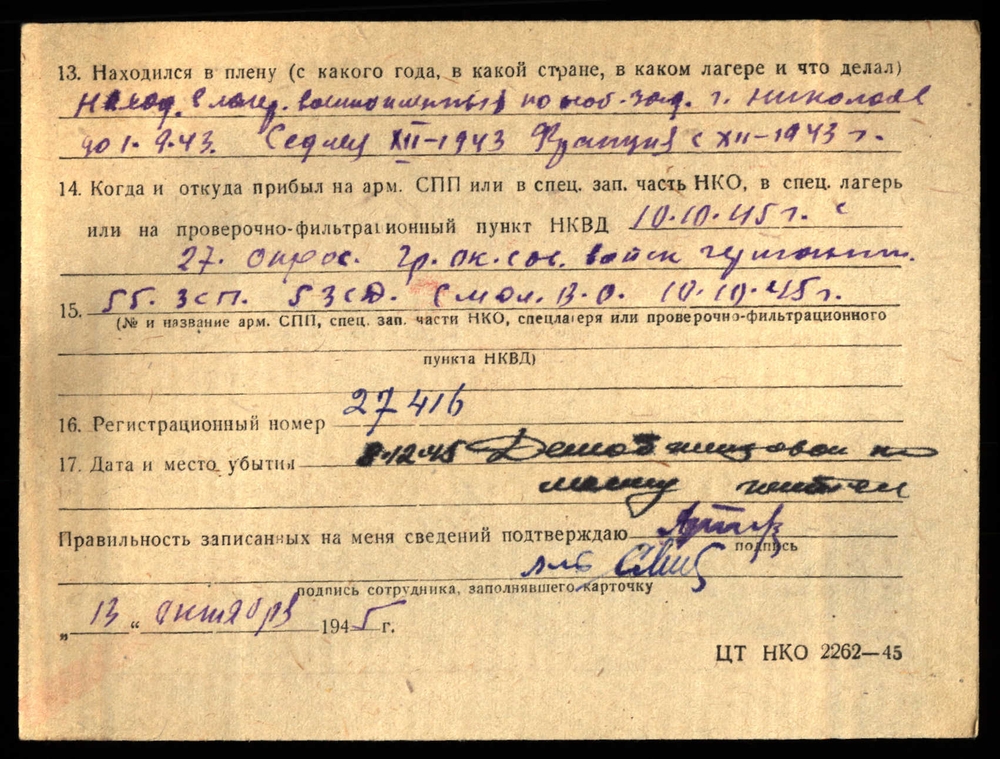 13. Находился в плену (с какого года, в какой стране, в каком лагере и что делал)
Наход. в лагер. военнопленных г. Николаев
до 1.9.43. XII-1943 Франция с XII-1943 г.
14. Когда и откуда прибыл на арм. СПП или в спец. зап. часть НКО, в спец. лагерь
или на проверочно-фильтрационный пункт НКВД 10.10.45 г. с
27. Гр. ок. сов. войск германии.
15. 55. ЗСП. 5 ЗСД. Смол. В.О. 10.10.45 г.
(№ и название арм. СПП, спец. зап. части НКО, спецлагеря или проверочно-фильтрационного
пункта НКВД)
16. Регистрационный номер 27416
17. Дата и место убытия 8-12-45 Демобилизован по
месту
Правильность записанных на меня сведений подтверждаю
подпись
подпись сотрудника, заполнявшего карточку
„ 13 “ октября 1945 г.
ЦТ НКО 2262—45